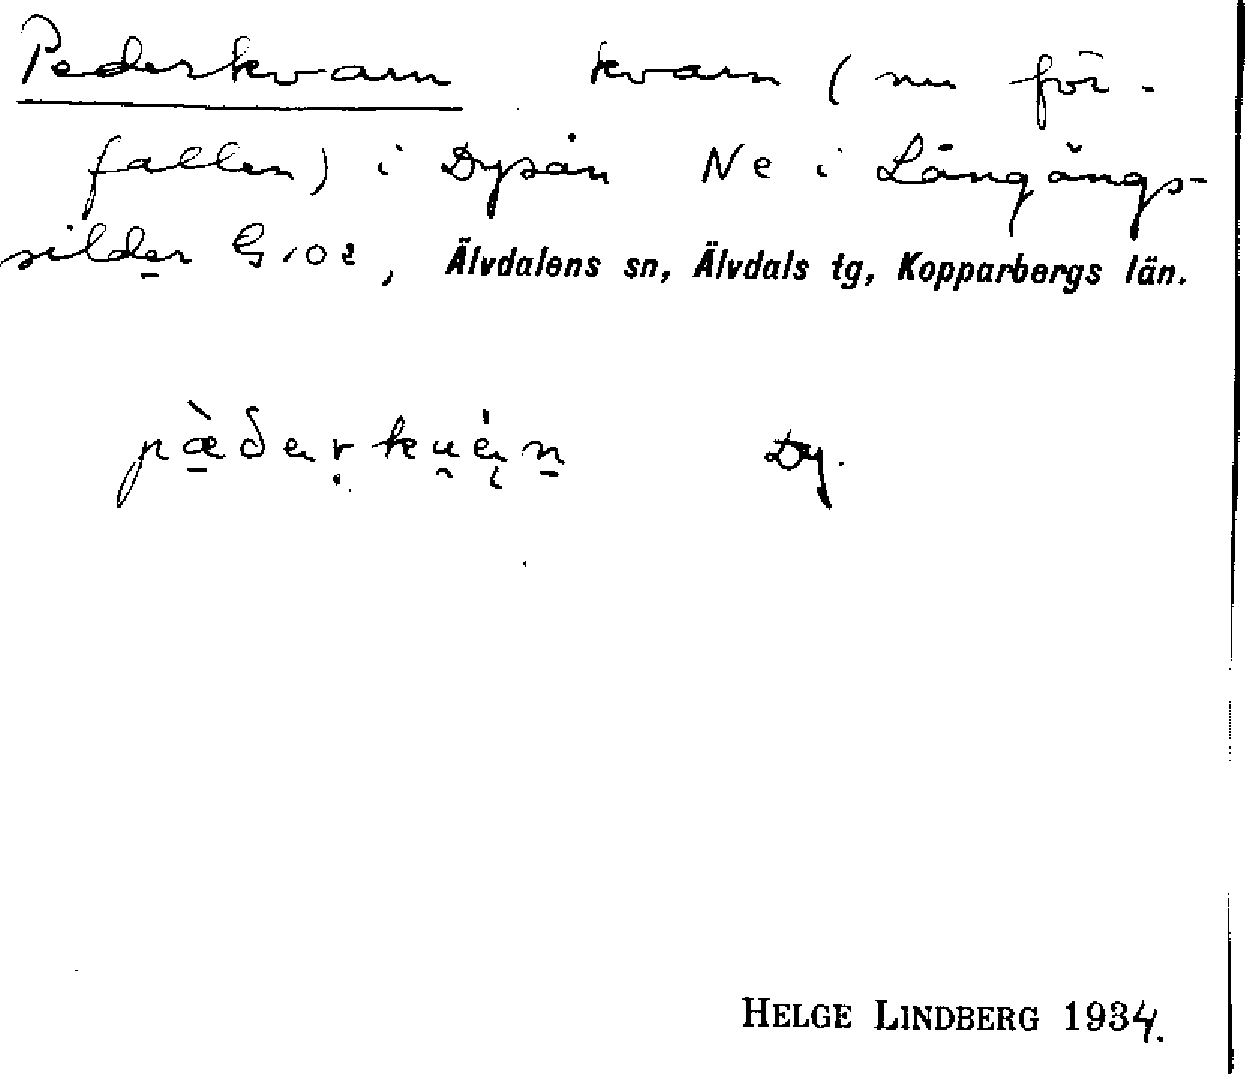 Pederkvarn kvarn (nu för-
fallen) i Dysån Ne i Långängs-
silder G 102, Älvdalens sn, Älvdals tg, Kopparbergs län.
pæ̀ðerkuę́n Dy.
HELGE LINDBERG 1934.